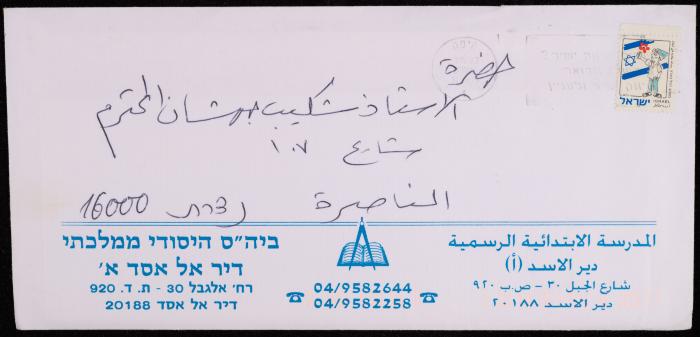 حضرة
الاستاذ شكيب جهشان المحترم
شارع ١٠٧
الناصرة נצרת 16000
ישראל
ISRAEL
ביה"ס היסודי ממלכתי
דיר אל אסד א'
רח' אלגבל 30 - ת. ד. 920
דיר אל אסד 20188
04/9582644
04/9582258
المدرسة الابتدائية الرسمية
دير الاسد (أ)
شارع الجبل ٣٠ - ص.ب ٩٢٠
دير الاسد ٢٠١٨٨